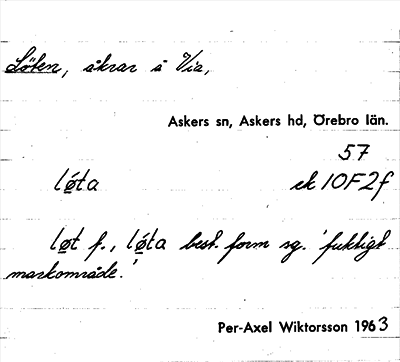 Löten, åkrar å Via,
Askers sn, Askers hd, Örebro län.
57
lø̀ta ek 10F2f
løt f., lø̀ta best. form sg. 'fuktigt
markområde.'
Per-Axel Wiktorsson 1963